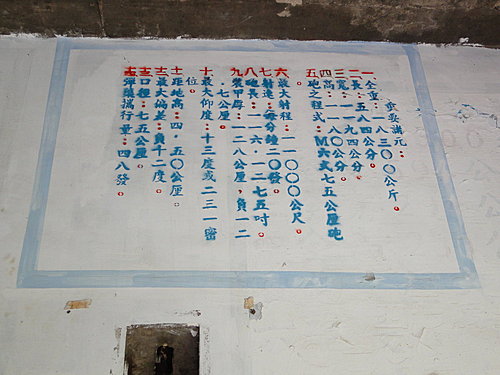 重要諸元：
一.全重：一八三○○公斤。
二長：五八四公分。
三寬：二九四公分。
四高：二八○公分。
五砲之程式：M六式七五公厘砲
六最大射程：一一○○○公尺。
七射速：每分鐘二○發。
八砲長：一一六.一二七五吋。
九裝甲厚：一二八公厘，負一二
.七公厘。
十最大仰度：十三度或二三一密
位。
十一距地高：四.五○公厘。
十二最大偏差：負十二度。
十三口徑：七五公厘。
十四彈藥攜行量：四八發。